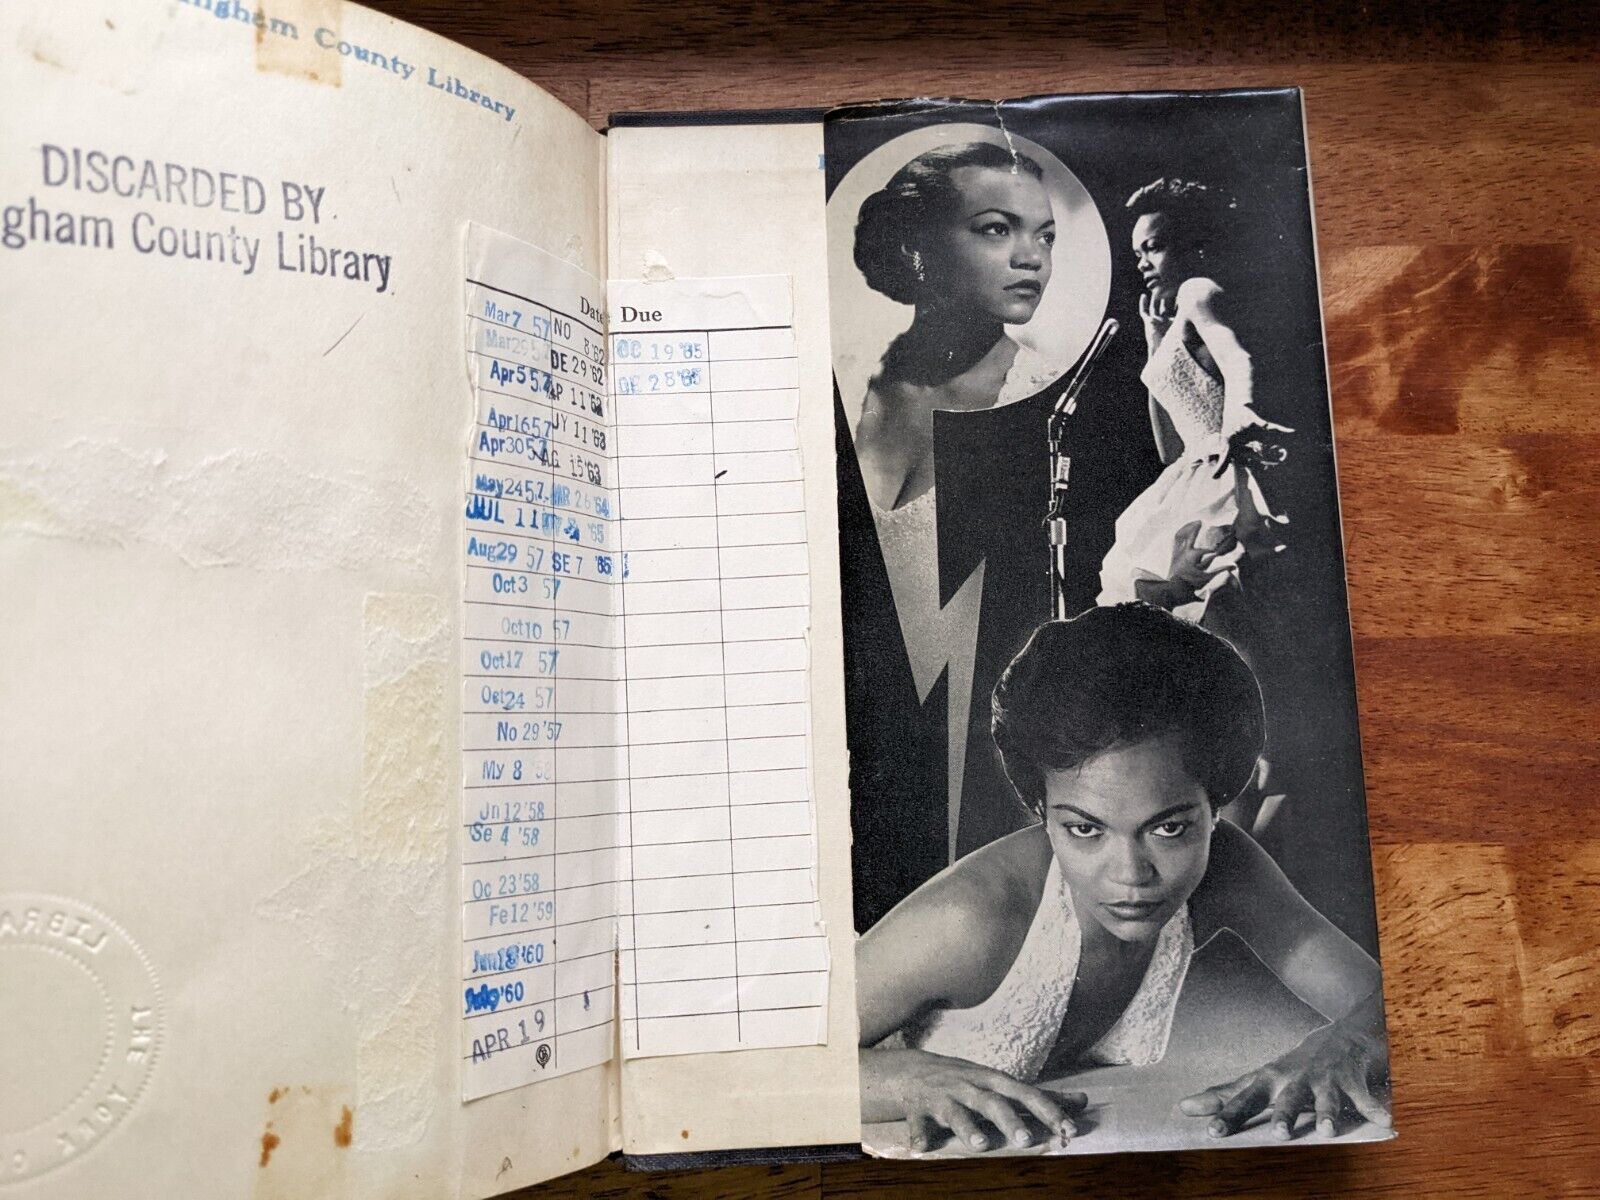 ngham County Library
DISCARDED BY
gham County Library
Date Due
Mar 7 57
NO 8 '62
Mar 29 57
DE 29 '62
Apr 5 57
AP 11 '63
Apr 16 57
JY 11 '63
Apr 30 57
AG 15 '63
May 24 57
MR 26 '64
JUL 11
'65
Aug 29 57
SE 7 '65
Oct 3 57
Oct 10 57
Oct 17 57
Oct 24 57
No 29 '57
My 8 '58
Jn 12 '58
Se 4 '58
Oc 23 '58
Fe 12 '59
'60
July '60
APR 19
OC 19 '65
DE 28 '65
LIBRA
THE
YORK